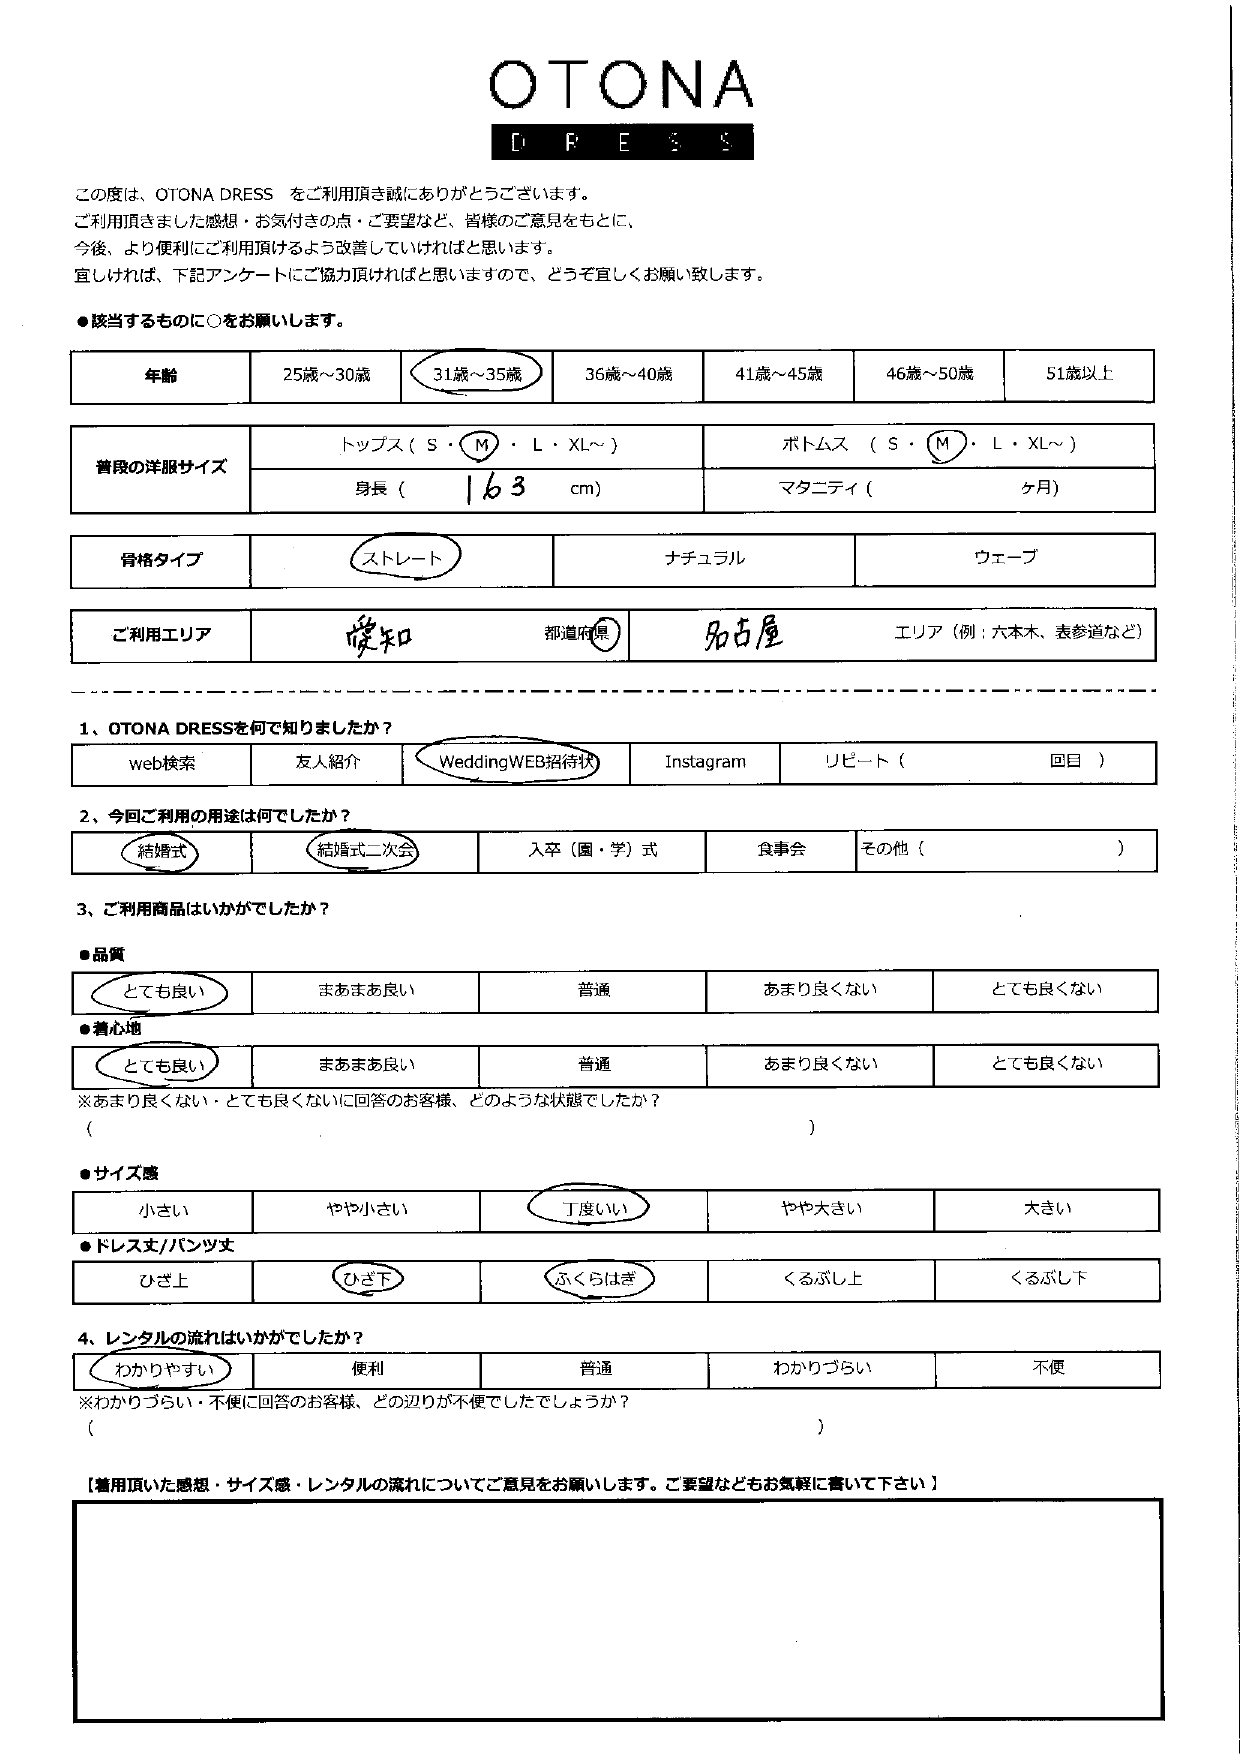 OTONA
DRESS
この度は、OTONA DRESS　をご利用頂き誠にありがとうございます。
ご利用頂きました感想・お気付きの点・ご要望など、皆様のご意見をもとに、
今後、より便利にご利用頂けるよう改善していければと思います。
宜しければ、下記アンケートにご協力頂ければと思いますので、どうぞ宜しくお願い致します。
●該当するものに○をお願いします。
年齢 25歳～30歳 31歳～35歳 36歳～40歳 41歳～45歳 46歳～50歳 51歳以上
普段の洋服サイズ トップス ( S ・ M ・ L ・ XL～ ) ボトムス ( S ・ M ・ L ・ XL～ )
身長 ( 163 cm) マタニティ ( ケ月)
骨格タイプ ストレート ナチュラル ウェーブ
ご利用エリア 愛知 都道府県 名古屋 エリア（例；六本木、表参道など）
1、OTONA DRESSを何で知りましたか？
web検索 友人紹介 WeddingWEB招待状 Instagram リピート（ 回目 ）
2、今回ご利用の用途は何でしたか？
結婚式 結婚式二次会 入卒（園・学）式 食事会 その他（ ）
3、ご利用商品はいかがでしたか？
●品質
とても良い まあまあ良い 普通 あまり良くない とても良くない
●着心地
とても良い まあまあ良い 普通 あまり良くない とても良くない
※あまり良くない・とても良くないに回答のお客様、どのような状態でしたか？
( )
●サイズ感
小さい やや小さい 丁度いい やや大きい 大きい
●ドレス丈/パンツ丈
ひざ上 ひざ下 ふくらはぎ くるぶし上 くるぶし下
4、レンタルの流れはいかがでしたか？
わかりやすい 便利 普通 わかりづらい 不便
※わかりづらい・不便に回答のお客様、どの辺りが不便でしたでしょうか？
( )
【着用頂いた感想・サイズ感・レンタルの流れについてご意見をお願いします。ご要望などもお気軽に書いて下さい 】